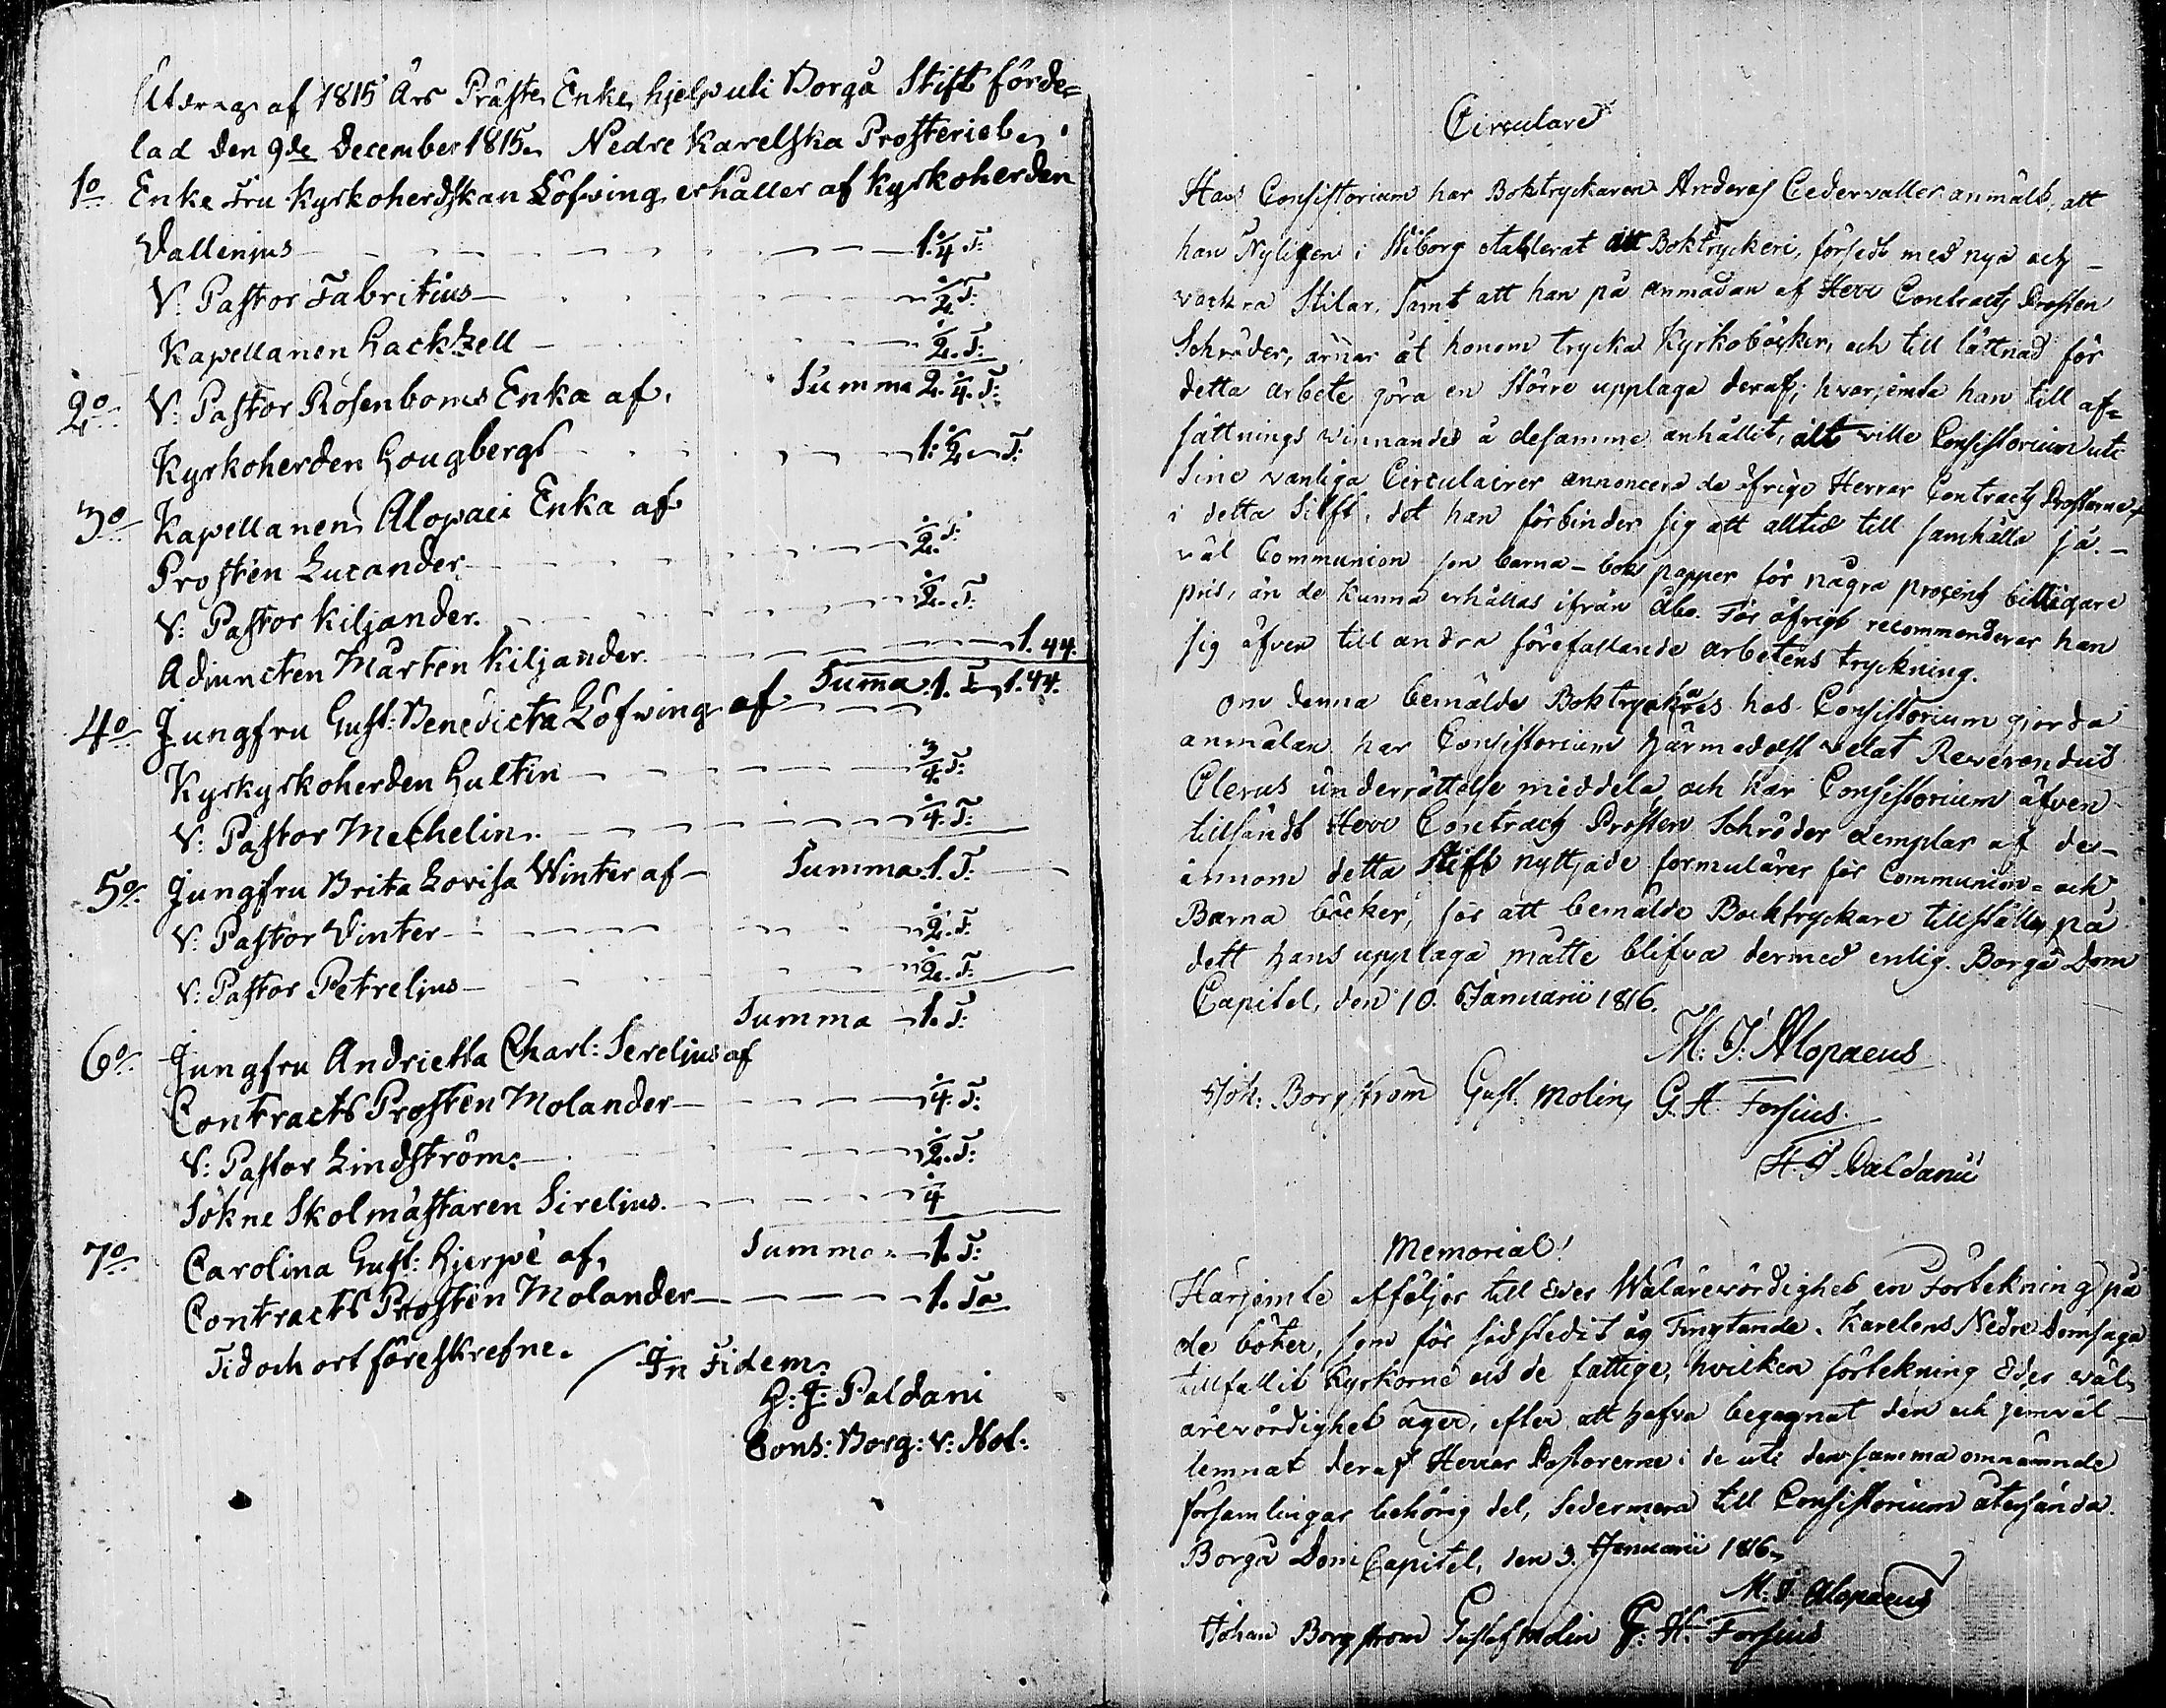 Utdrag af 1815 Års Präste Enke hjelp uti Borgå Stift förde=
lad den 9de December 1815. Nedre Karelska Prosteriet.
1o Enke Fru Kyrkoherdskan Löfving erhåller af Kyrkoherden
Vallenius 1.¼ T:
V: Pastor Fabritius ½ T:
Kapellanen Hackzell ½. T:
Summa 2.¼. T:
2o V: Pastor Rosenboms Enka af.
Kyrkoherden Hougberg 1:½ T:
3o Kapellanen Alopæi Enka af
Prosten Lucander ½. T:
V: Pastor Kiljander. ½. T:
Adjuncten Mårten Kiljander. 1. 44.
Summa. 1. T. 1. 44.
4o Jungfru Gust: Benedicta Löfving af
Kyrkyrkoherden Hultin ¾ T:
V: Pastor Mechelin. ¼. T:
Summa. 1. T:
5o Jungfru Brita Lovisa Winter af
V: Pastor Vinter ½. T:
V: Pastor Petrelius ½. T:
Summa 1. T:
6o Jungfru Andrietta Charl: Serelius af
Contracts Prosten Molander ¼. T:
V: Pastor Lindström. ½. T:
Sokne Skolmästaren Sirelius. ¼
Summa 1. T:
7o Carolina Gust: Hjerpe af,
Contracts Prosten Molander 1. Ta
Tid och ort föreskrefne. In Fidem.
H: J: Paldani
Cons: Borg: V: Not:
Circulare
Hos Consistorium har Boktryckaren Anders Cedervaller anmält, att
han Nyligen i Wiborg etablerat ett Boktryckeri, försedt med nya och
vackra Stilar, samt att han på anmodan af Herr Contracts Prosten
Schröder, ärnar åt honom trycka Kyrkoböcker, och till lättnad för
detta arbete göra en större upplaga deraf; hvarjemte han till af=
sättnings vinnande å desamme anhållit, att ville Consistorium uti
Sine vanliga Circulairer annoncera de öfrige Herrar Contracts Prostarne
i detta Stift, det han förbinder sig att alltid till samhälla så
väl Communion som barna-boks papper för några procent billigare
pris, än de kunna erhållas ifrån Åbo. För öfrigt recommenderar han
sig äfven till andra förefallande arbetens tryckning.
Om denna bemälde Boktryckares hos Consistorium gjorda
anmälan har Consistorium härmedelst velat Reverendus
Clerus underrättelse meddela och har Consistorium äfven
tillsändt Herr Contracts Prosten Schröder exemplar af de
innom detta Stift nyttjade formulärer för Communion= och
Barna böcker, för att bemälde Bocktryckare tillställas, på
dett hans upplaga måtte blifva dermed enlig. Borgå Dom
Capitel, den 10. Januarii 1816.
M: J: Alopaeus
Joh: Borgström Gust. Molin, G. H. Forsius.
H. J. Paldani
Memorial!
Härjemte följer till Eder Wälärevördighet en Förtekning på
de böter, som för sidstledit åg Tingtande. Karelens Nedre Domsaga
tillfallit Kyrkorne och de fattige, hvilken förtekning Eder väl
ärevördighet äger, efter att hafva begagnat den och jemväl
lemnat deraf Herrar Pastorerne i de uti densamma omnämnde
församlingar behörig del, sedermera till Consistorium återsända.
Borgå Dom Capitel, den 3. Januarii 1816.
M: J: Alopaeus
Johan Borgström Gustaf Molin G: H: Forsius